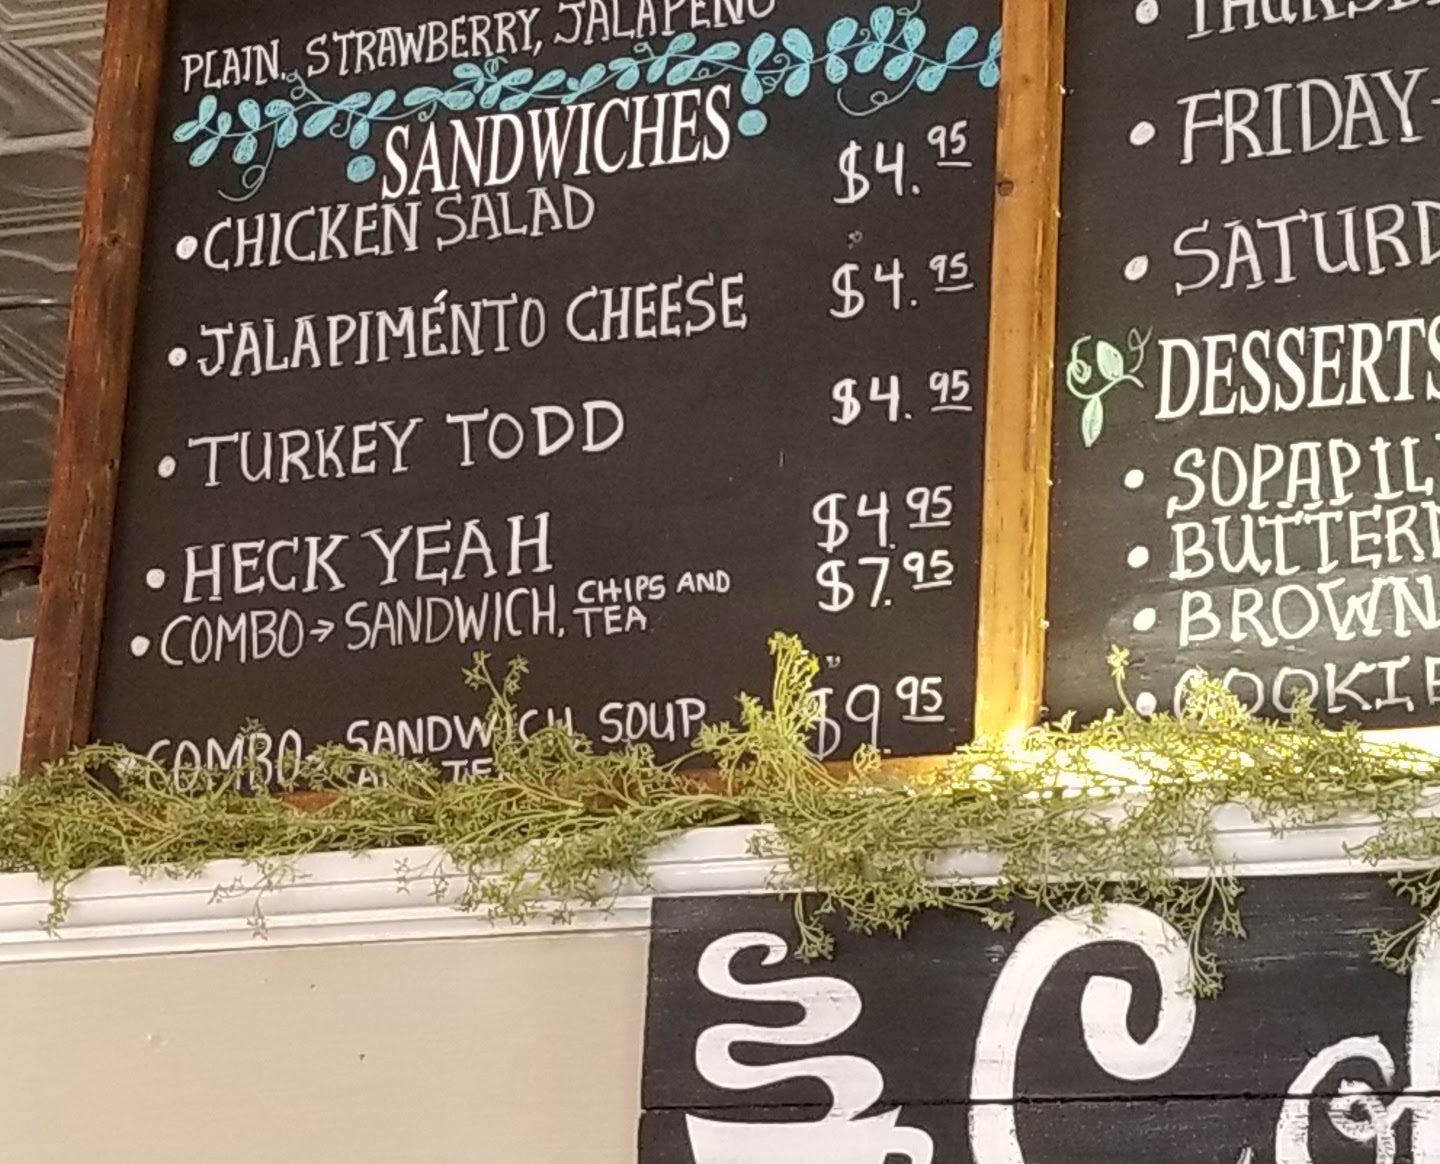 PLAIN, STRAWBERRY, JALAPENO
SANDWICHES
• CHICKEN SALAD $4.95
• JALAPIMÉNTO CHEESE $4.95
• TURKEY TODD $4.95
• HECK YEAH $4.95
• COMBO → SANDWICH, CHIPS AND TEA $7.95
COMBO → SANDWICH SOUP $9.95
AND TE
• THURSD
• FRIDAY-
• SATURD
DESSERTS
• SOPAPIL
• BUTTER
• BROWN
• COOKIE